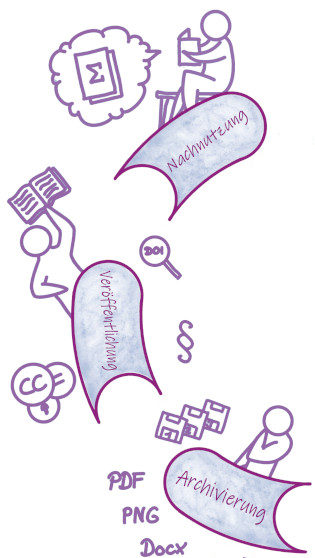 Σ
Nachnutzung
DOI
Veröffentlichung
§
CC =
Archivierung
PDF
PNG
Docx